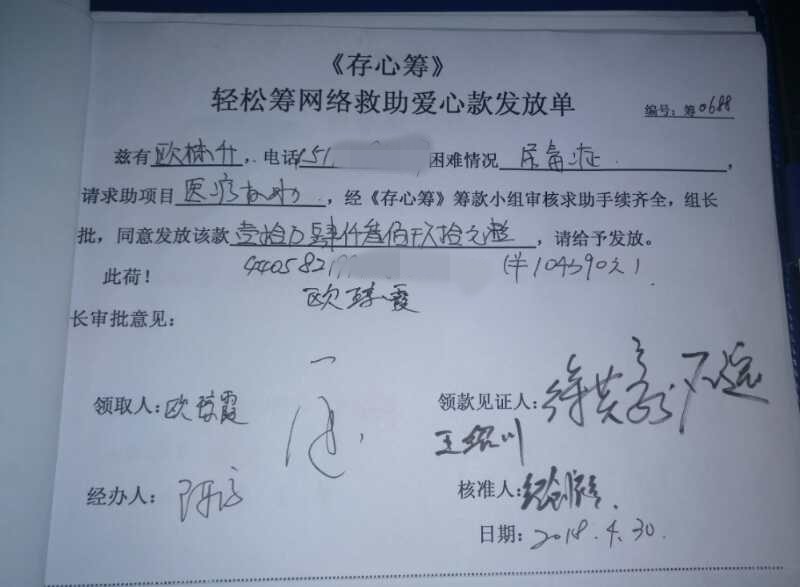 《存心筹》
轻松筹网络救助爱心款发放单
编号：筹0688
兹有欧林升，电话151 困难情况尿毒症，
请求助项目医疗救助，经《存心筹》筹款小组审核求助手续齐全，组长
批，同意发放该款壹拾万肆仟叁佰玖拾元整，请给予发放。
此荷！ 4405821 (¥104390元)
欧 霞
长审批意见：
领取人：欧 霞 领款见证人：
王绍川
经办人： 核准人：
日期：2018.4.30.